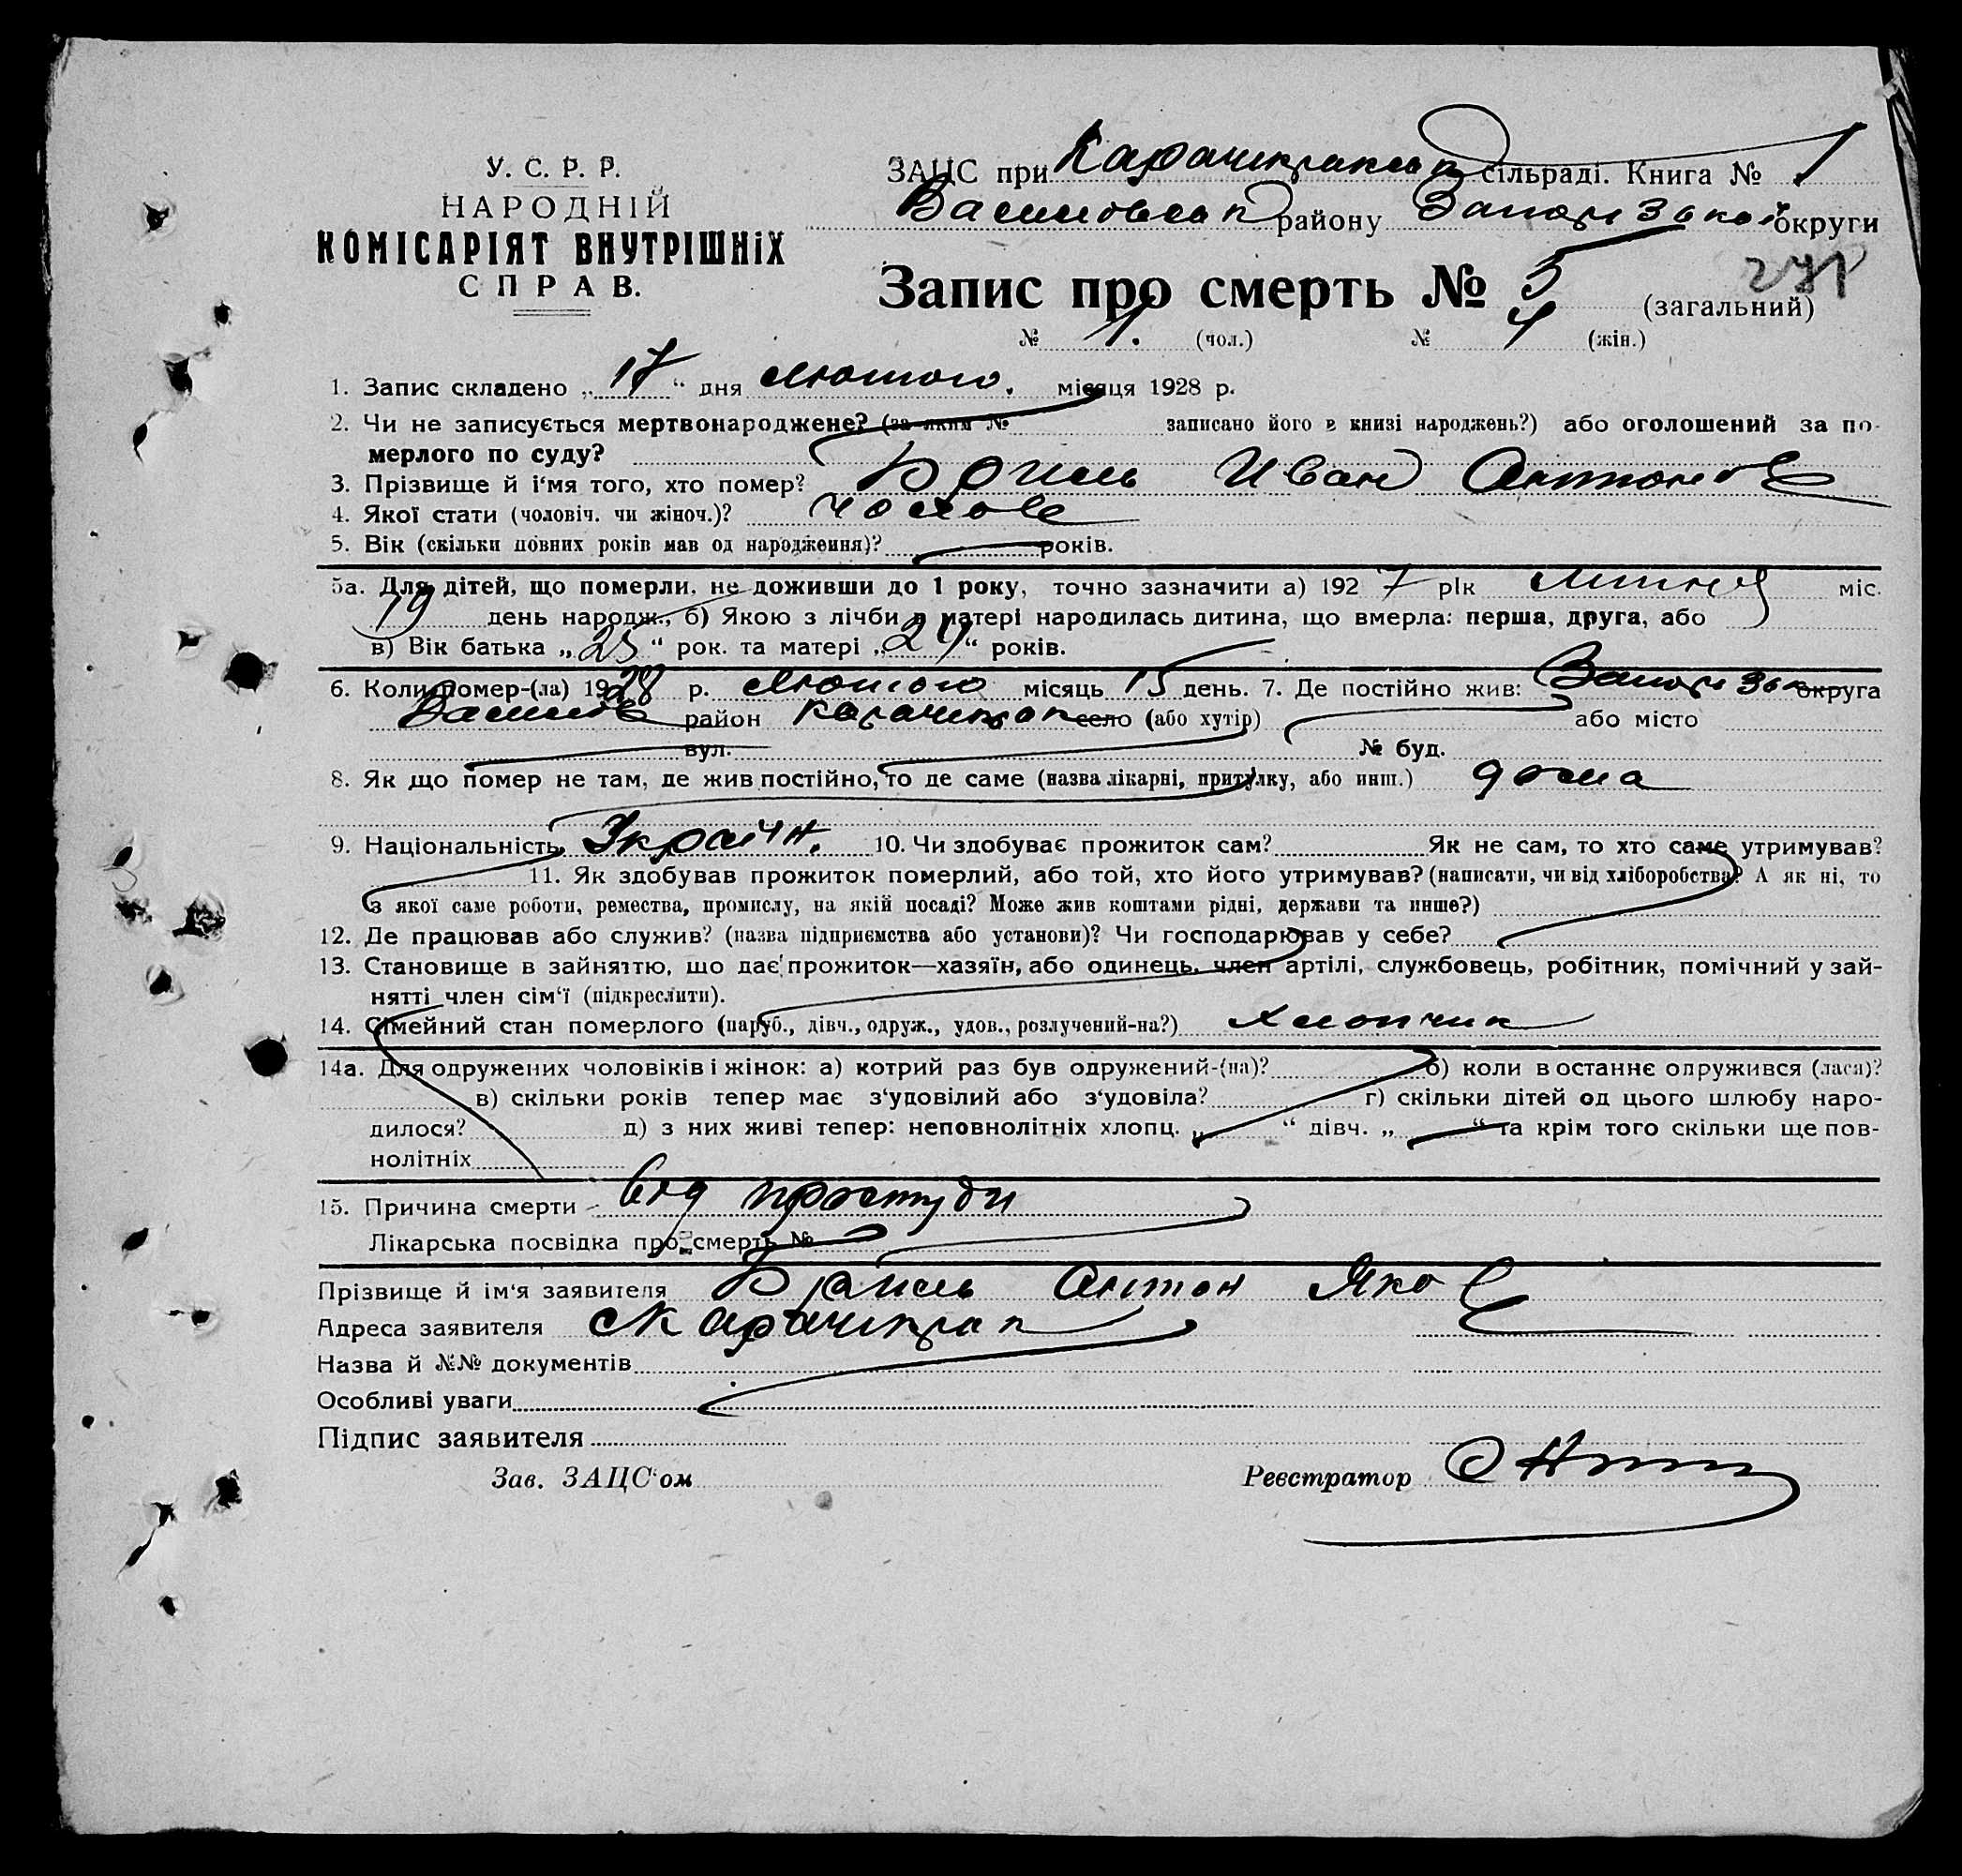 У. С. Р. Р.
НАРОДНІЙ
КОМІСАРІЯТ ВНУТРІШНІХ
СПРАВ.
ЗАЦС при Карачикракськ сільраді. Книга № 1
Василівськ району Запорізької округи
Запис про смерть № 5 (загальний)
№ 1. (чол.) № 4 (жін.)
1. Запис складено „ 17 “ дня Лютого. місяця 1928 р.
2. Чи не записується мертвонароджене? (за яким № записано його в книзі народжень?) або оголошений за по-
мерлого по суду?
3. Прізвище й і‘мя того, хто помер? Бриль Иван Антонов
4. Якої стати (чоловіч. чи жіноч.)? чолов
5. Вік (скільки повних років мав од народження)? років.
5а. Для дітей, що померли, не доживши до 1 року, точно зазначити а) 1927 рік липня міс.
19 день народж., б) Якою з лічби в матері народилась дитина, що вмерла: перша, друга, або
в) Вік батька „ 25 “ рок. та матері „ 24 “ років.
6. Коли помер-(ла) 1928 р. Лютого місяць 15 день. 7. Де постійно жив: Запоріз округа
Василів район Карачикрак село (або хутір) або місто
вул. № буд.
8. Як що помер не там, де жив постійно, то де саме (назва лікарні, притулку, або инш.) дома
9. Національність Україн. 10. Чи здобуває прожиток сам? Як не сам, то хто саме утримував?
11. Як здобував прожиток померлий, або той, хто його утримував? (написати, чи від хліборобства? А як ні, то
з якої саме роботи, ремества, промислу, на якій посаді? Може жив коштами рідні, держави та инше?)
12. Де працював або служив? (назва підприємства або установи)? Чи господарював у себе?
13. Становище в зайняттю, що дає прожиток—хазяїн, або одинець, член артілі, службовець, робітник, помічний у зай-
нятті член сім‘ї (підкреслити).
14. Сімейний стан померлого (паруб., дівч., одруж., удов., розлучений-на?) хлопчик
14а. Для одружених чоловіків і жінок: а) котрий раз був одружений-(на)? б) коли в останнє одружився (лася)?
в) скільки років тепер має з‘удовілий або з‘удовіла? г) скільки дітей од цього шлюбу наро-
дилося? д) з них живі тепер: неповнолітніх хлопц. „ “ дівч. „ “ та крім того скільки ще пов-
нолітніх
15. Причина смерти від простуди
Лікарська посвідка про смерть №
Прізвище й ім‘я заявителя Бриль Антон Яков
Адреса заявителя с Карачикрак
Назва й №№ документів
Особливі уваги
Підпис заявителя
Зав. ЗАЦС‘ом Реєстратор